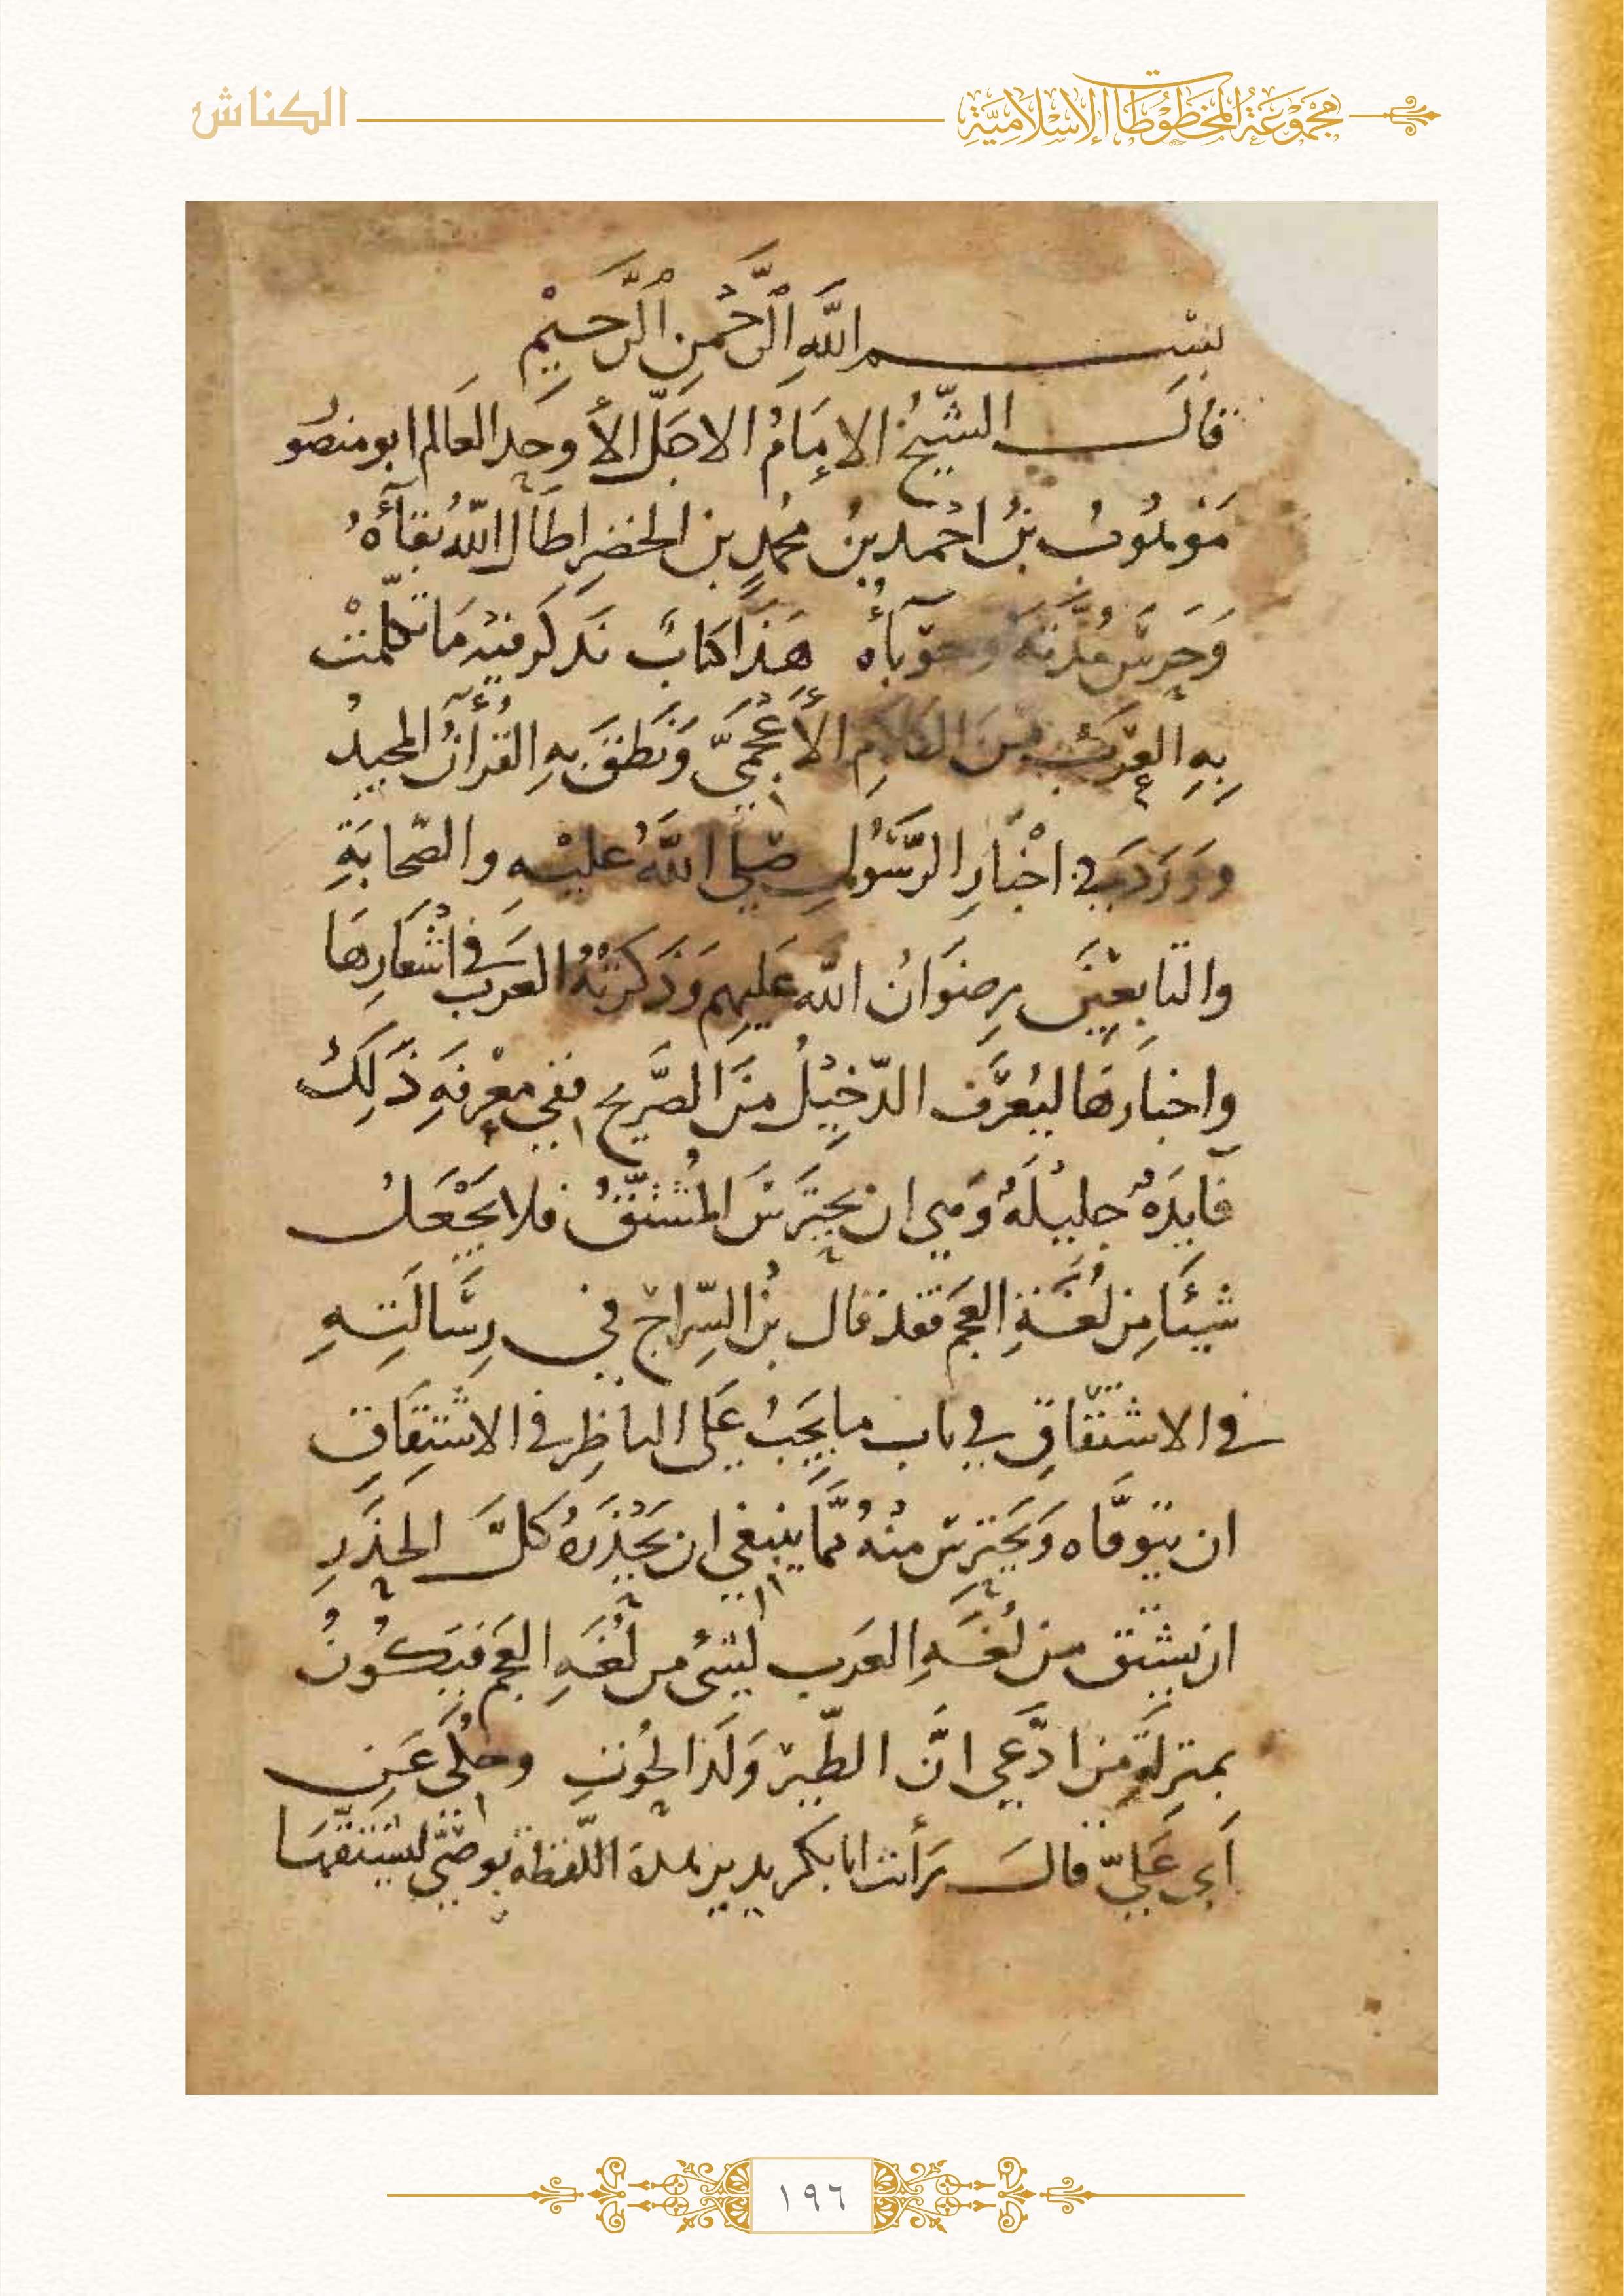 مجموعة المخطوطات الإسلامية
الكناش
بِسْمِ اللَّهِ الرَّحْمٰنِ الرَّحِيْمِ
قَالَ الشّيخُ الإمَامُ الاجَلّ الأوحد العَالم ابو منصُو
مَوْهُوبُ بنُ احْمد بنُ محُمدٍ بن الخضِرِ اطَال اللهُ بَقآءَهُ
وَحَرسَ مُدَّتَهُ وحَوْبآءهُ هَذَا كتابٌ نَذكر فيه مَا تكلّمتْ
بِهِ العَرَبُ مِنَ الكَلَامِ الأَعْجَمِيّ وَنَطَقَ بهِ القُرآنُ المجيدُ
وَوَرَدَ في اخْبَارِ الرَّسُولِ صَلّى اللَّهُ عليْهِ والصّحابَةِ
والتابِعيْنَ رضوَانُ اللّه عَليهم وَذَكَرتْهُ العرب في اشْعَارِهَا
واخبارهَا ليُعْرَف الدّخِيْلُ منَ الصَّريح ففي معْرِفَةِ ذَلِكَ
فَايدَهٌ جليلَهٌ وَهي ان يَحْتَرِسَ المُشْتقُّ فلا يَجْعَلُ
شيئًا مِن لُغَةِ العَجم فقد قال بنُ السّراج في رِسَالَتِهِ
في الاشْتقَاقِ في باب ما يَجِبُ عَلَى الناظِر في الاشتِقَاقِ
ان يتوقّاه وَيَحْتَرِسَ منْهُ ممّا ينبغي ان يَحْذَرَهُ كلَّ الحذَرِ
ان يشتق من لُغَةِ العَرب لشيء من لُغَهِ العَجم فيَكُونُ
بمنزِلَةِ من ادّعى انّ الطّيرَ وَلَدُ الحُوتِ وحُكَى عَن
أبي عَليّ قالَ رَأيت ابا بكر يديرُ هذه اللّفظة بوصّيّ ليشتقّهَا
١٩٦